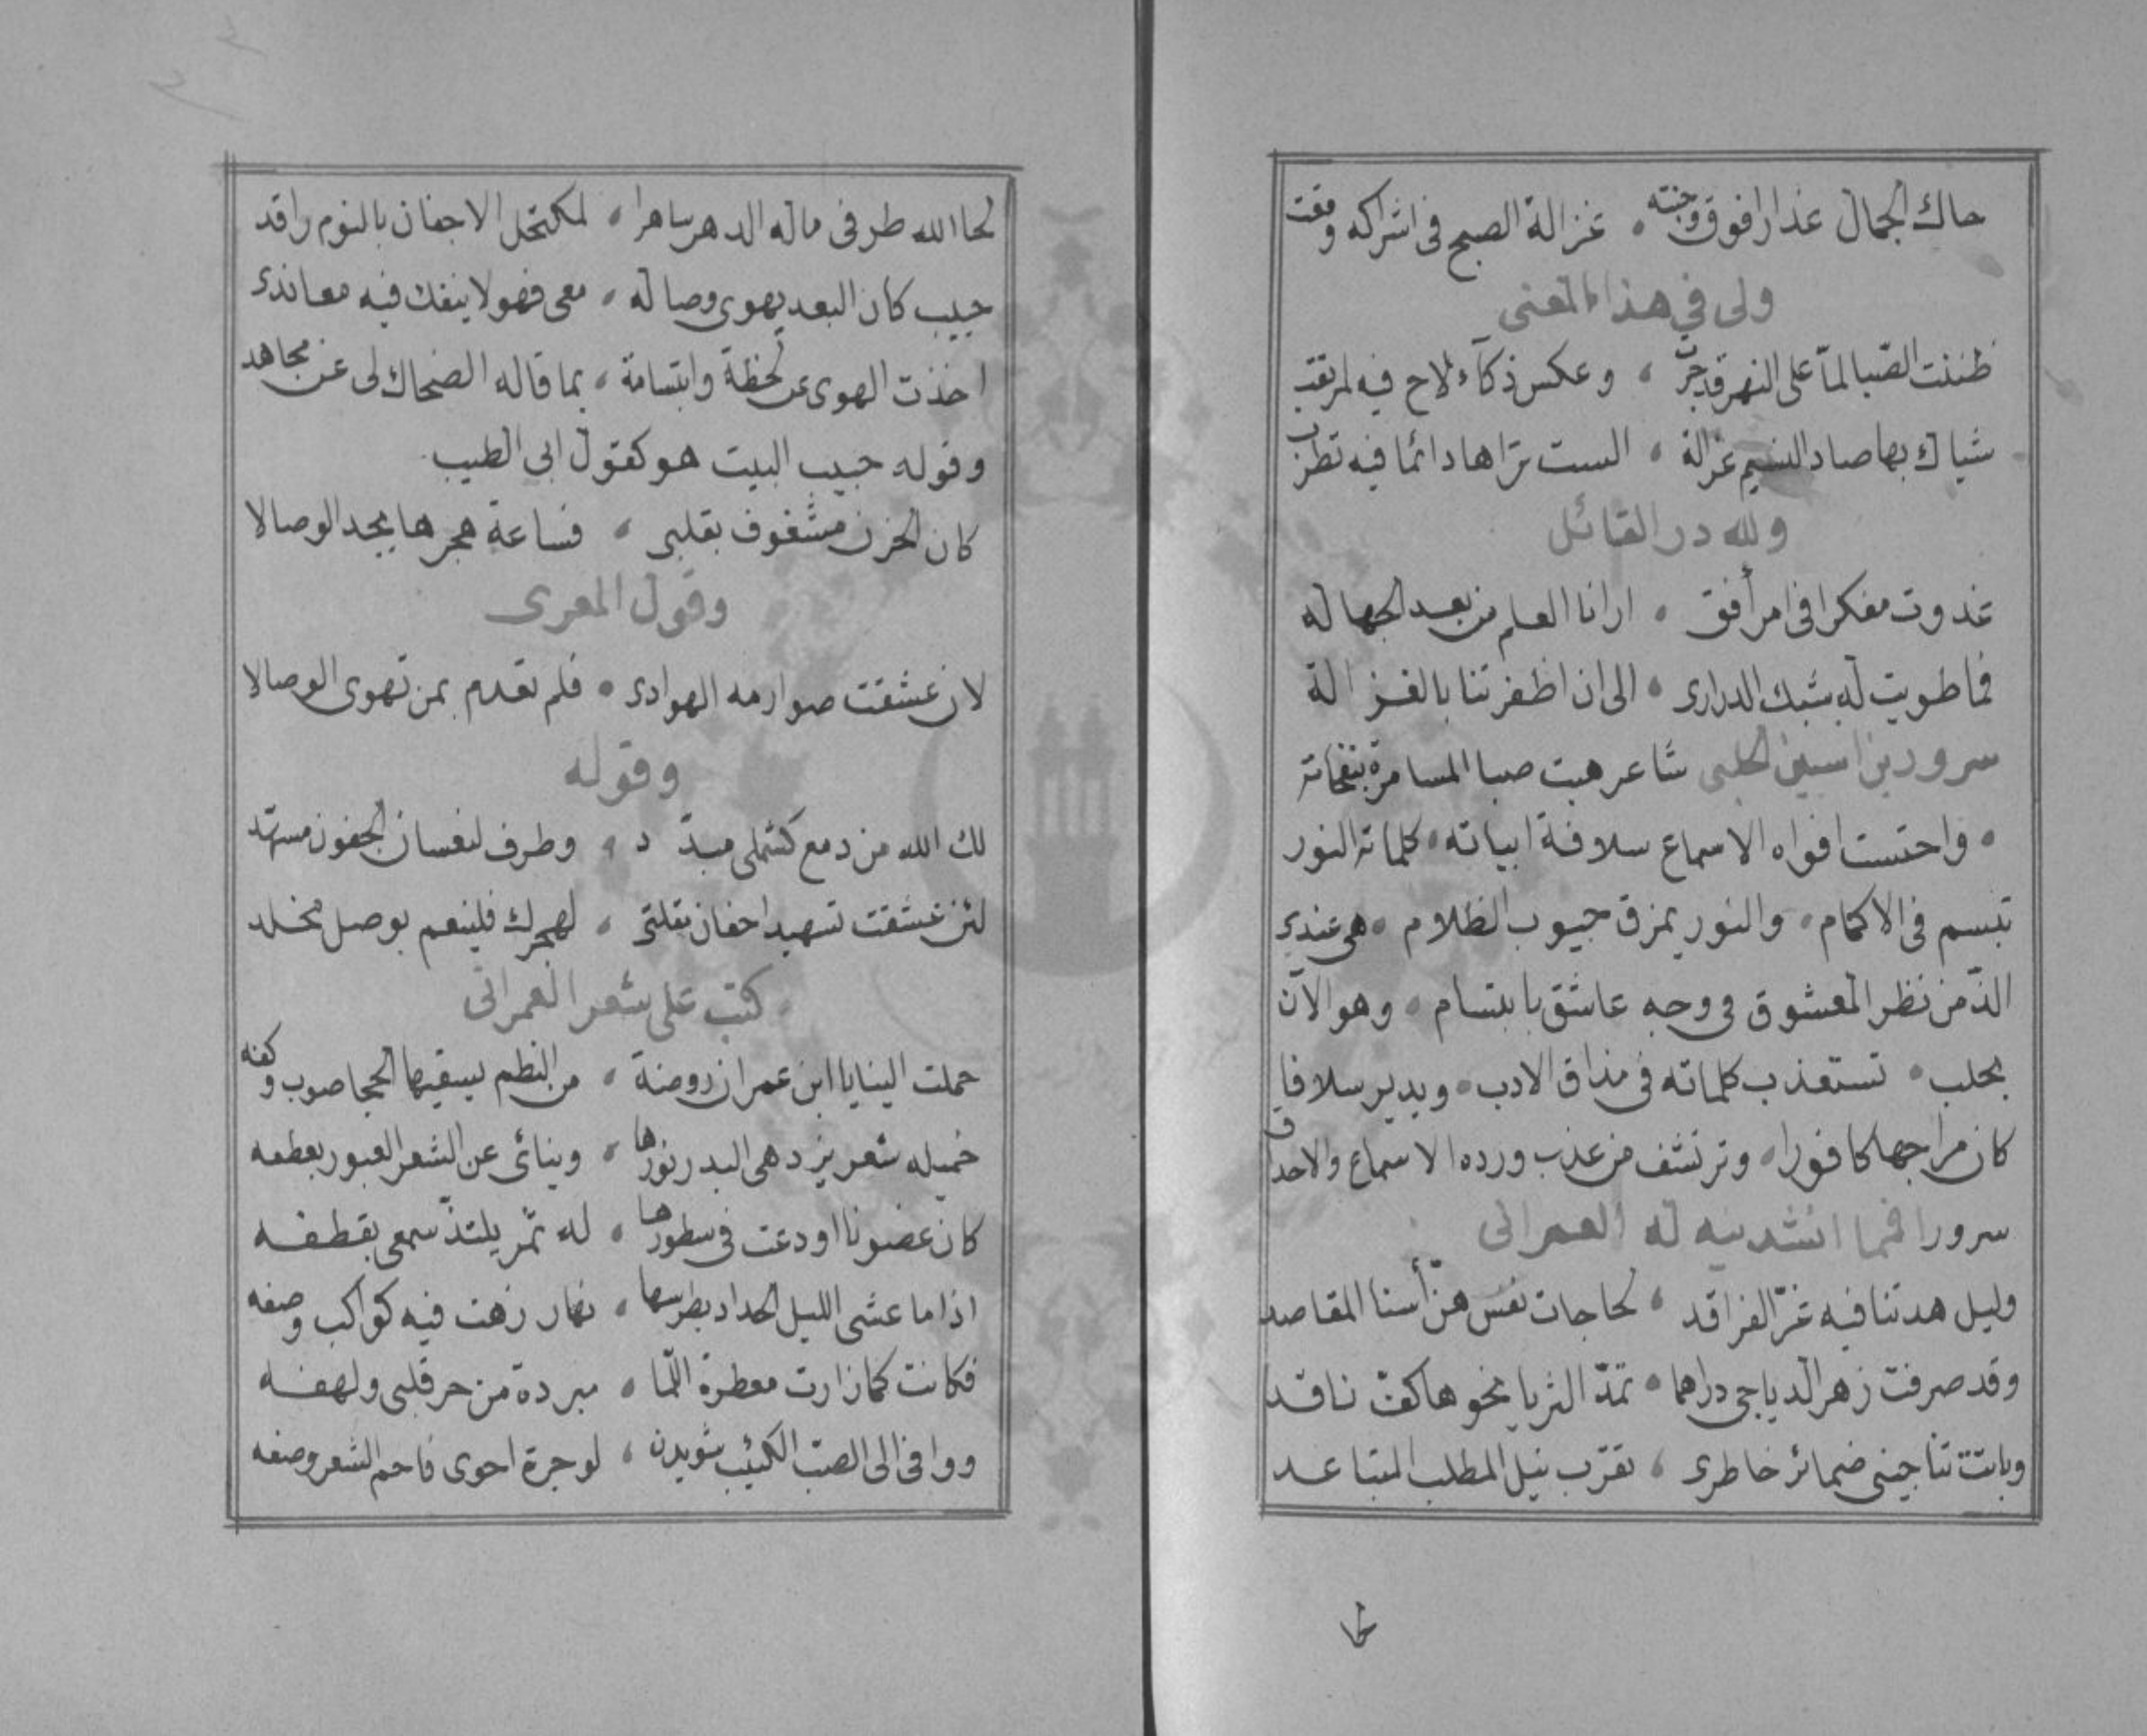 حاك الجمال عذارا فوق وجنته ، غزالة الصبح فى اشراكه وقعت
ولى فى هذا المعنى
ظننت الصّبا لمّا على النهر قد جرت ، وعكس ذكآء لاح فيه لمرتقب
شباك بها صاد النسيم غزالة ، الست تراها دائما فيه تضطرب
ولله در القائل
غدوت مفكرا فى امر أفق ، ارانا العلم من بعد الجهاله
فما طويت له شبك الدرارى ، الى ان اظفرتنا بالغزالة
سرور بن اسنين الحلبى شاعر هبت صبا المسامرة بنفحاته
، واحتست افواه الاسماع سلافة ابياته ، كلماته النور
تبسم فى الاكمام ، والنور يمزق جيوب الظلام ، هى عندى
الذّ من نظر المعشوق فى وجه عاشق بابتسام ، وهو الآن
بحلب ، تستعذب كلماته فى مذاق الادب ، ويدير سلافا
كان مزاجها كافورا ، وترتشف من عذب ورده الاسماع والاحداق
سرورا فمما انشدنيه له العمرانى
وليل هدتنا فيه غرّ الفراقد ، لحاجات نفس هنّ أسنا المقاصد
وقد صرفت زهر الدياجى دراهما ، تمدّ الثريا نحوها كفّ ناقد
وباتت تناجينى ضمائر خاطرى ، بقرّب نيل المطلب المتباعد
لحا الله طرفى ماله الدهر ساهرا ، لمكتحل الاجفان بالنوم راقد
حبيب كان البعد يهوى وصاله ، معى فهو لا ينفك فيه معاندى
اخذت الهوى عن لحظة وابتسامة ، بما قاله الضحاك لى عن مجاهد
وقوله حبيب البيت هو كقول ابى الطيب
كان الحزن مشغوف بقلبى ، فساعة هجرها يجد الوصالا
وقول المعرى
لان عشقت صوارمه الهوادى ، فلم تعدم بمن تهوى الوصالا
وقوله
لك الله من دمع كشملى مبدّد ، وطرف لنعسان الجفون مسهّد
لئن عشقت تسهيد اجفان مقلتى ، لهجرك فلينعم بوصل مخلد
كتب على شعر العمرانى
حملت الينا يا ابن عمران روضة ، من النظم يسقيها الحجا صوب وكفه
خميله شعر يزدهى البدر نورها ، وينائى عن الشعر العبور بعطفه
كان غضونا اودعت فى سطورها ، له ثمر يلتذّ سمعى بقطفه
اذا ما عشى الليل الحداد بطرسها ، نهار زهت فيه كواكب وصفه
فكانت كما زارت معطرة اللّما ، مبردة من حر قلبى ولهفه
ووافى الى الصبّ الكئيب شويدن ، لوجرة احوى فاحم الشعر وصفه